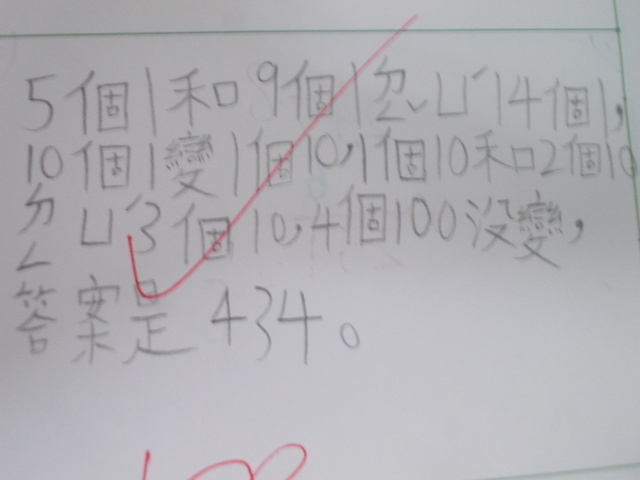 5個1和9個1ㄉㄥㄩˊ14個1,
10個1變1個10,1個10和2個10
ㄉㄥㄩˊ3個10,4個100沒變,
答案是434。